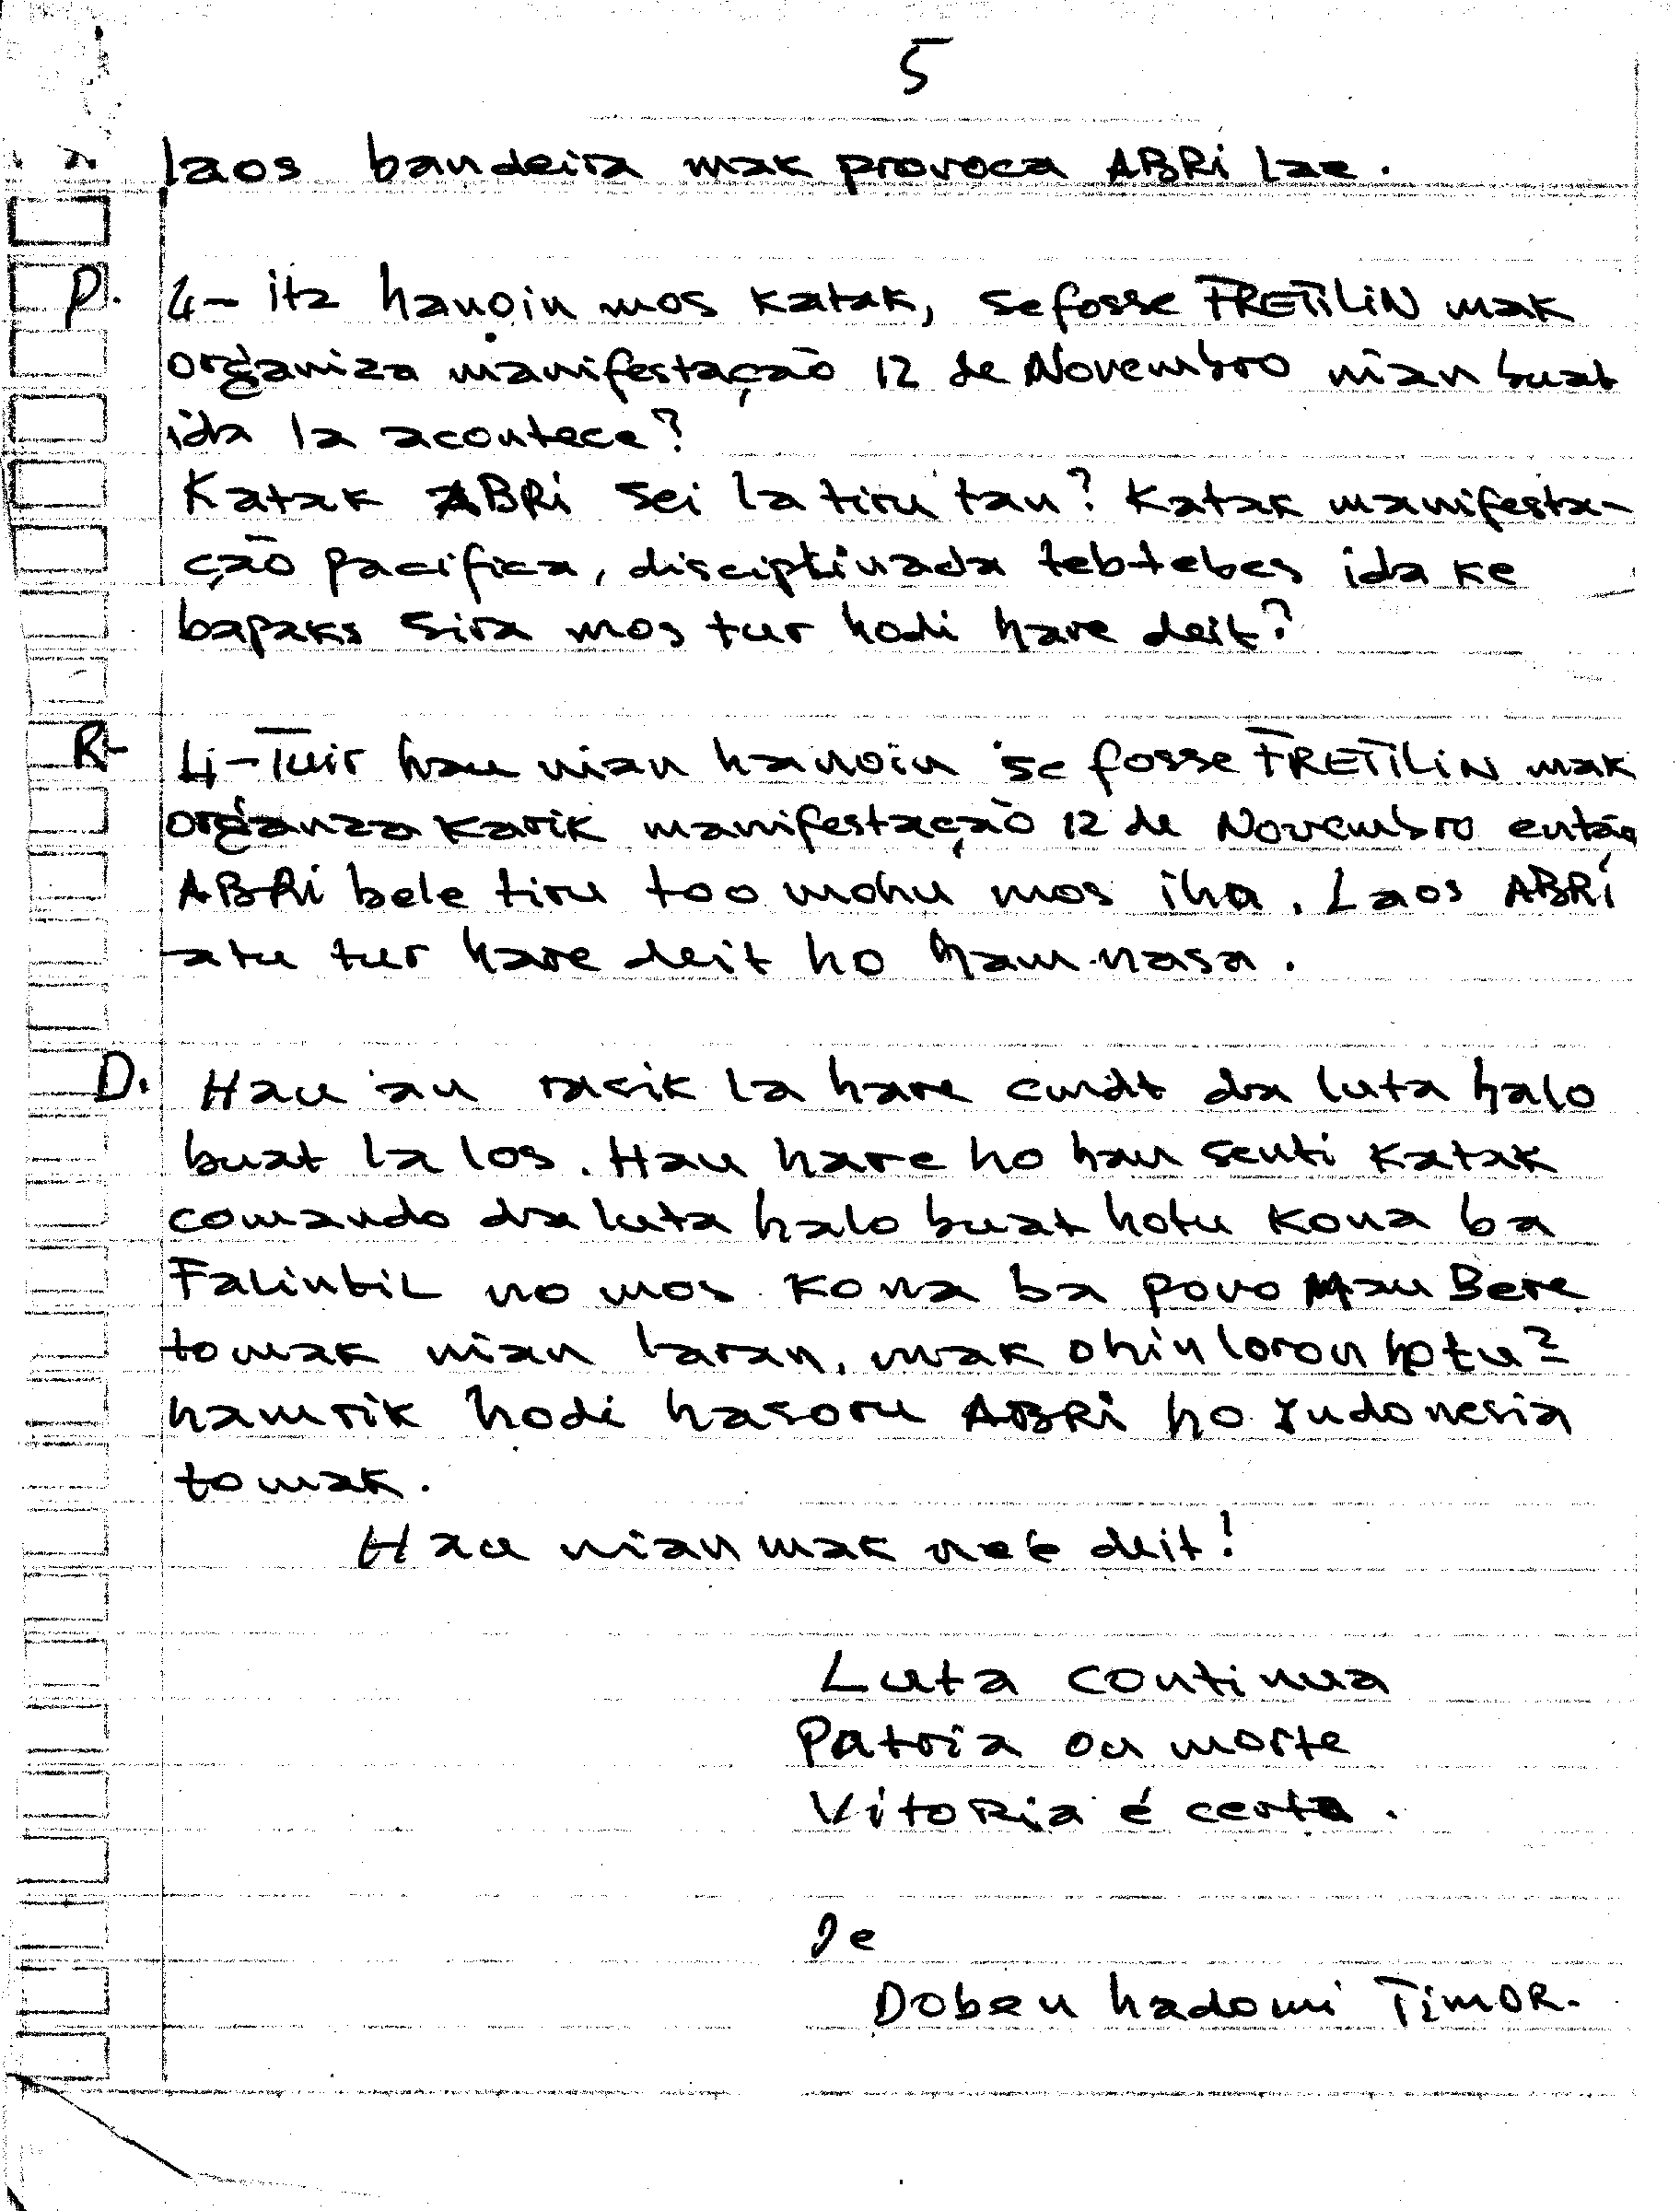 5
laos bandeira mak provoca ABRI lae.
P. 4- ita hanoin mos katak, se fosse FRETILIN mak
organiza manifestação 12 de Novembro nian buat
ida la acontece?
Katak ABRI sei la tiru tan? Katak manifesta-
ção pacifica, disciplinada tebtebes ida ke
bapaks sira mos tur hodi hare deit?
R- 4- Tuir hau nian hanoin se fosse FRETILIN mak
organza karik manifestação 12 de Novembro então
ABRI bele tiru too mohu mos iha. Laos ABRI
atu tur hare deit ho hamnasa.
D. Hau an rasik la hare cmdt da luta halo
buat la los. Hau hare ho hau senti katak
comando da luta halo buat hotu kona ba
Falintil no mos kona ba povo MauBere
tomak nian laran, mak ohin loron hotu2
hamrik hodi hasoru ABRI ho Indonesia
tomak.
Hau nian mak nee deit!
Luta continua
Patria ou morte
Vitoria é certa.
De
Doben hadomi Timor.